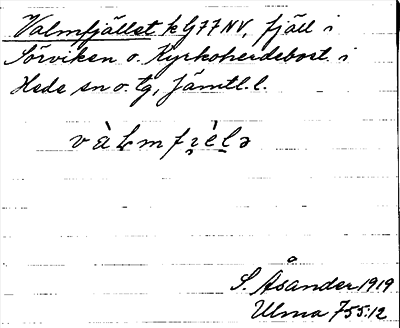 Valmfjället k G77NV, fjäll i
Sörviken o. Kyrkoherdebost. i
Hede sn o. tg, Jämtl. l.
S. Åsander 1919
Ulma 755:12